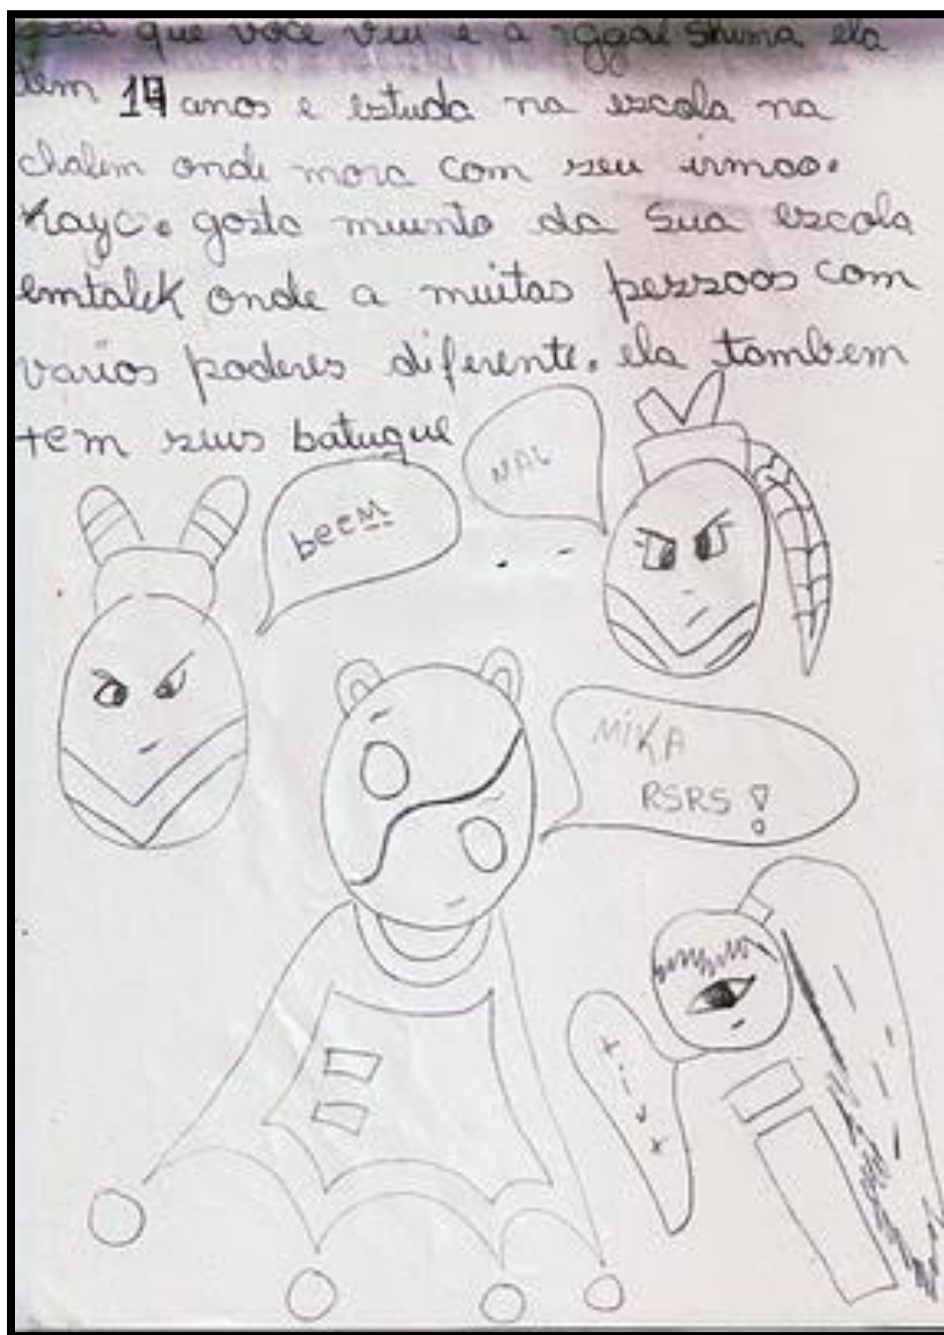 que você viu e a shima ela
tem anos e estuda na escola na
chalem onde mora com seu irmao.
Kayc. gosta muinto da sua escola
emtalek onde a muitas pessoas com
varios poderes diferente. ela tambem
tem seus batuque
beem
MAL
MIKA
RSRS!